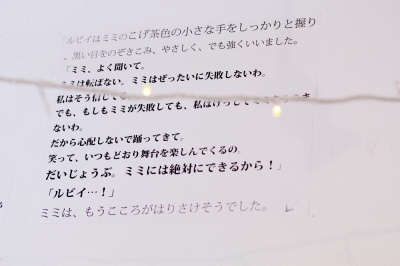 ルビイはミミのこげ茶色の小さな手をしっかりと握り
、黒い目をのぞきこみ、やさしく、でも強くいいました。
「ミミ、よく聞いて。
ミは転ばない。ミミはぜったいに失敗しないわ。
私はそう信して
でも、もしもミミが失敗しても、私は
ないわ。
だから心配しないで踊ってきて。
笑って、いつもどおり舞台を楽しんでくるの。
だいじょうぶ。ミミには絶対にできるから！」
「ルビイ…！」
ミミは、もうこころがはりさけそうでした。